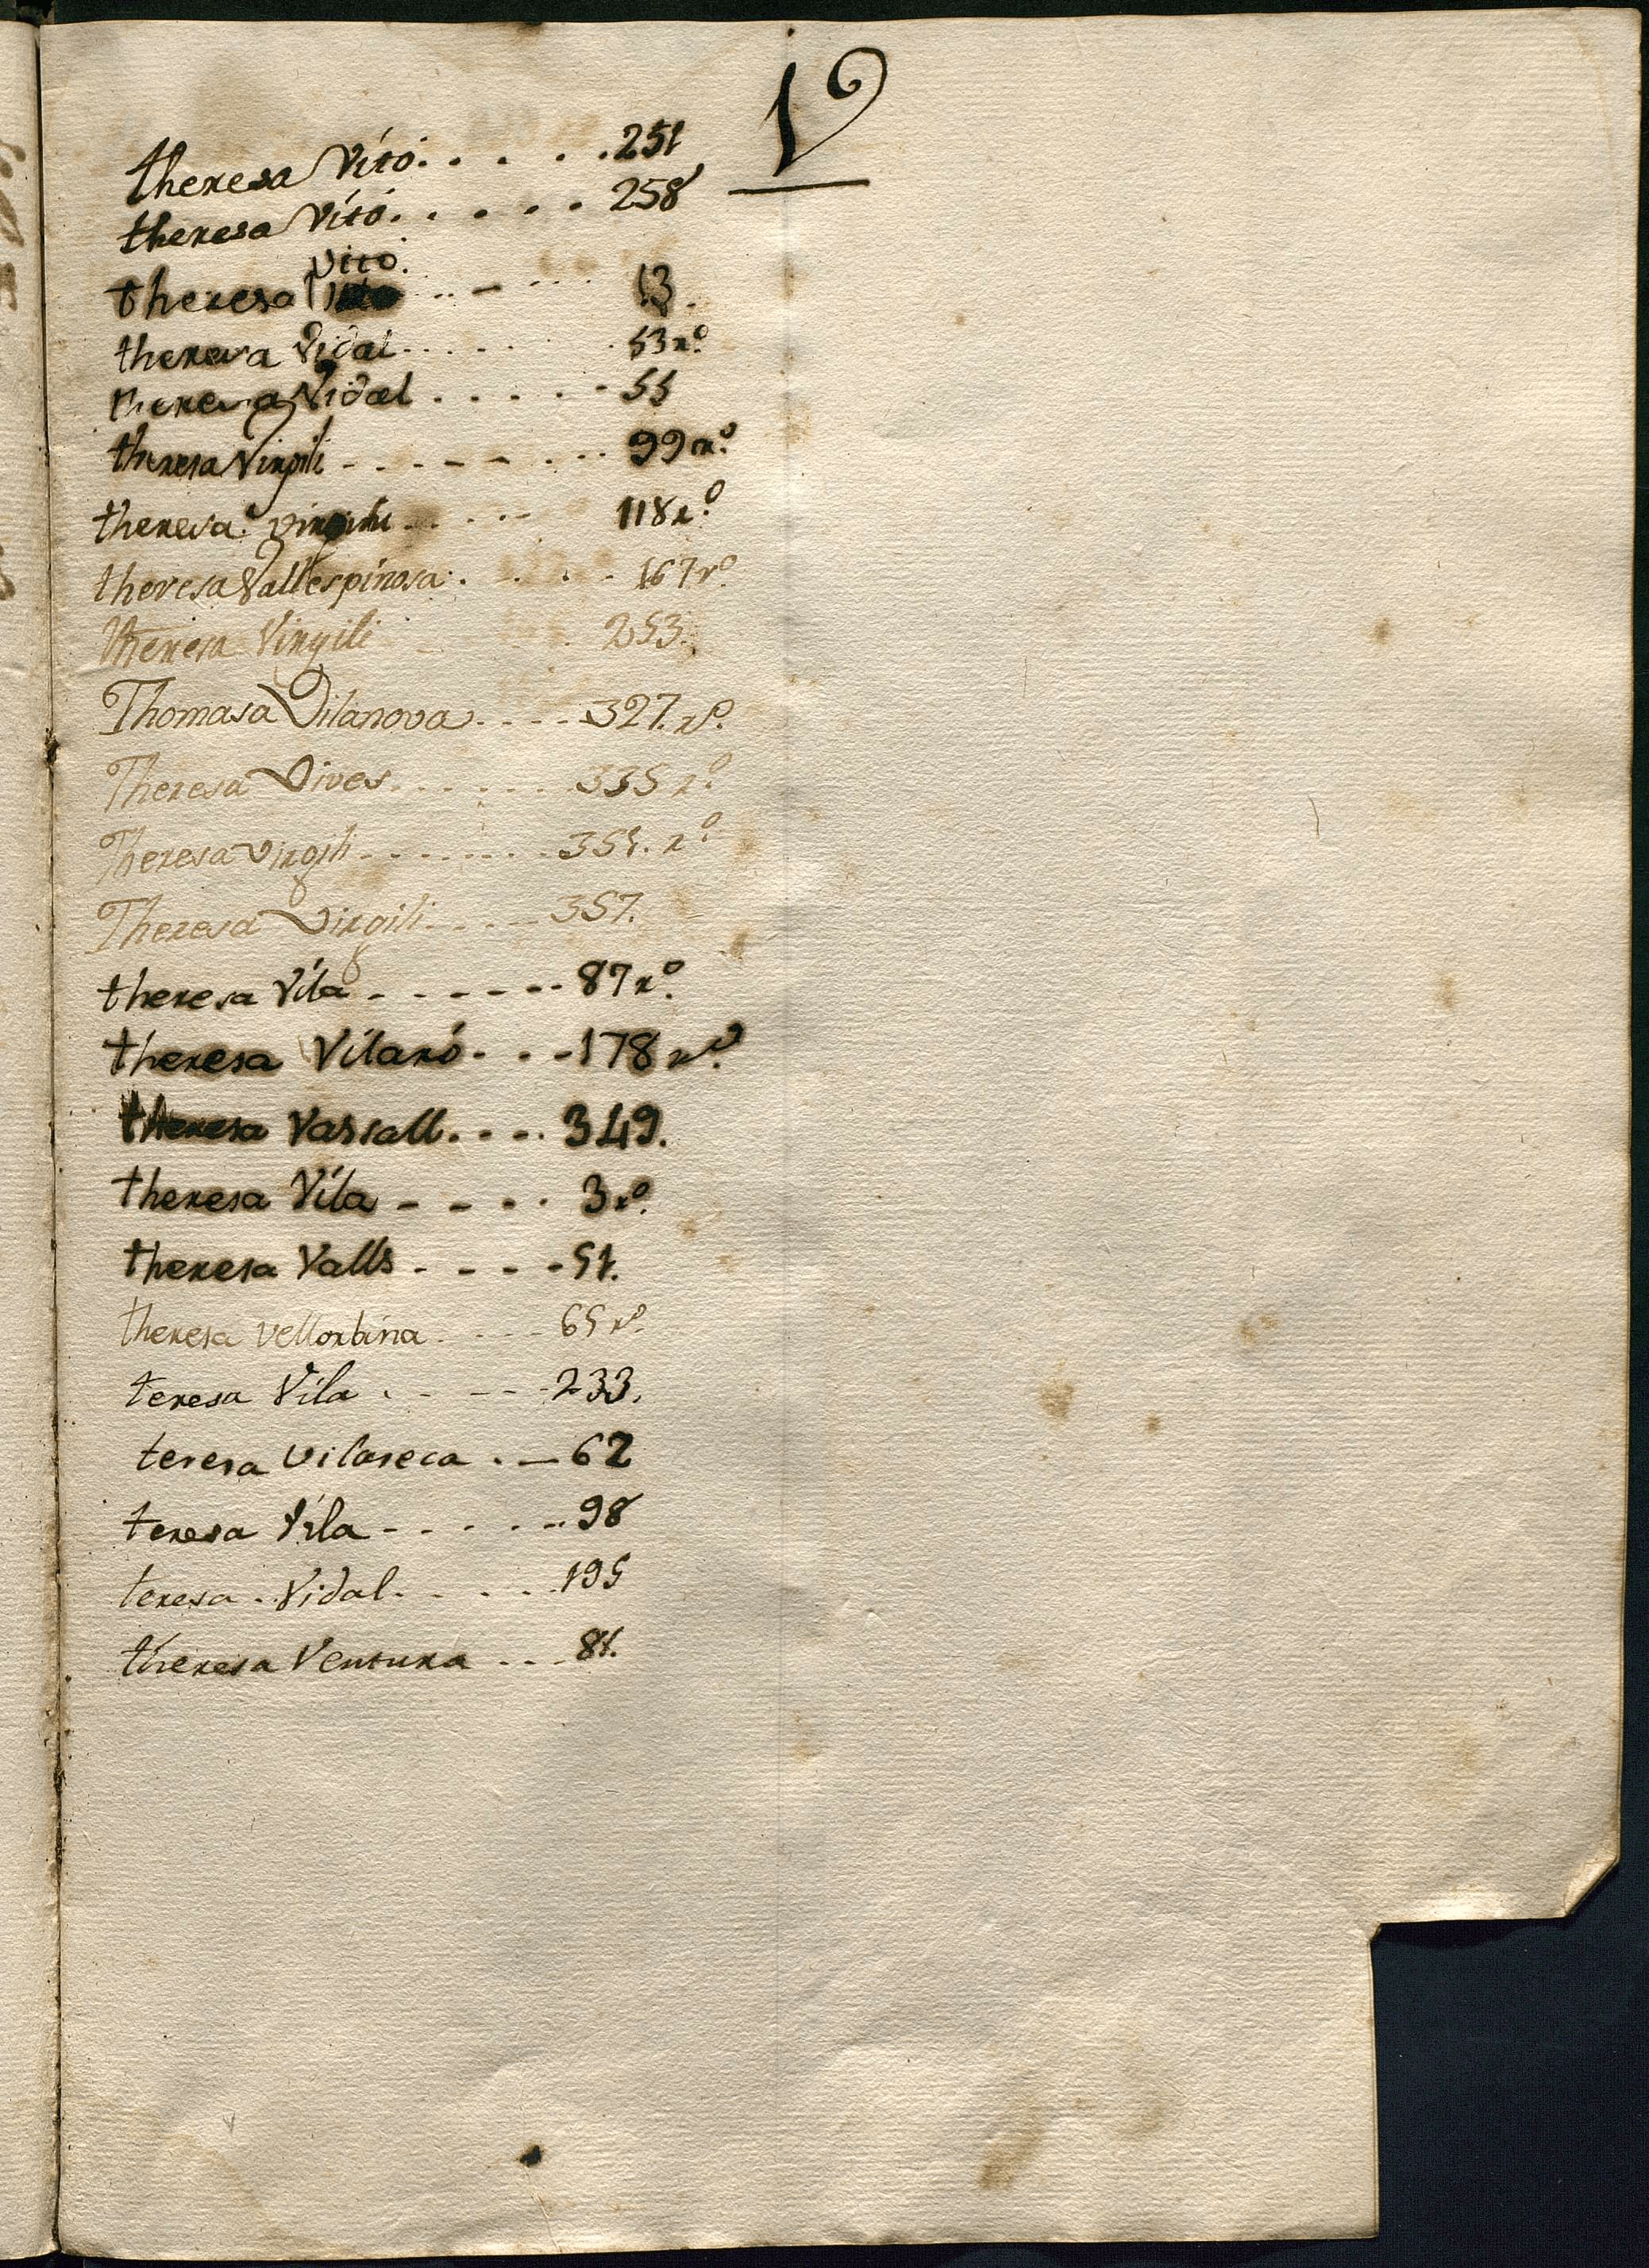 V
theresa Vító. . . . . . 251
theresa Vító. . . . . . 258
vitó.
theresa . . - . . . 13.
theresa Vidal . . . . . . 53 rº.
theresa Vidal . . . . . - 55
theresa Virgili - . . - - - . . . 99 rº.
theresa Virgili . . . . - - 118 rº.
theresa Vallespinosa. . . . . . 167 rº
theresa Virgili . . 253.
Thomasa Vilanova . - - - 327. rº.
Theresa Vives . . . . . . . 335 rº.
Theresa Virgili - - - - . . . - 351. rº.
Theresa Virgili. - . - - 357.
theresa Víla - - - - - - - 87 rº.
theresa Vílaró - . . - 178 rº.
theresa Vassall. - - . 349.
theresa Víla - - - . 3 rº.
theresa Valls - - - - 51.
theresa Vellorbina . - - - 65 rº.
teresa Vila . - - - - 233.
teresa Vilaseca . - 62
teresa Vila - - . . - . . 98
teresa . Vidal. - . . - . 195
theresa Ventura . - . - 81.